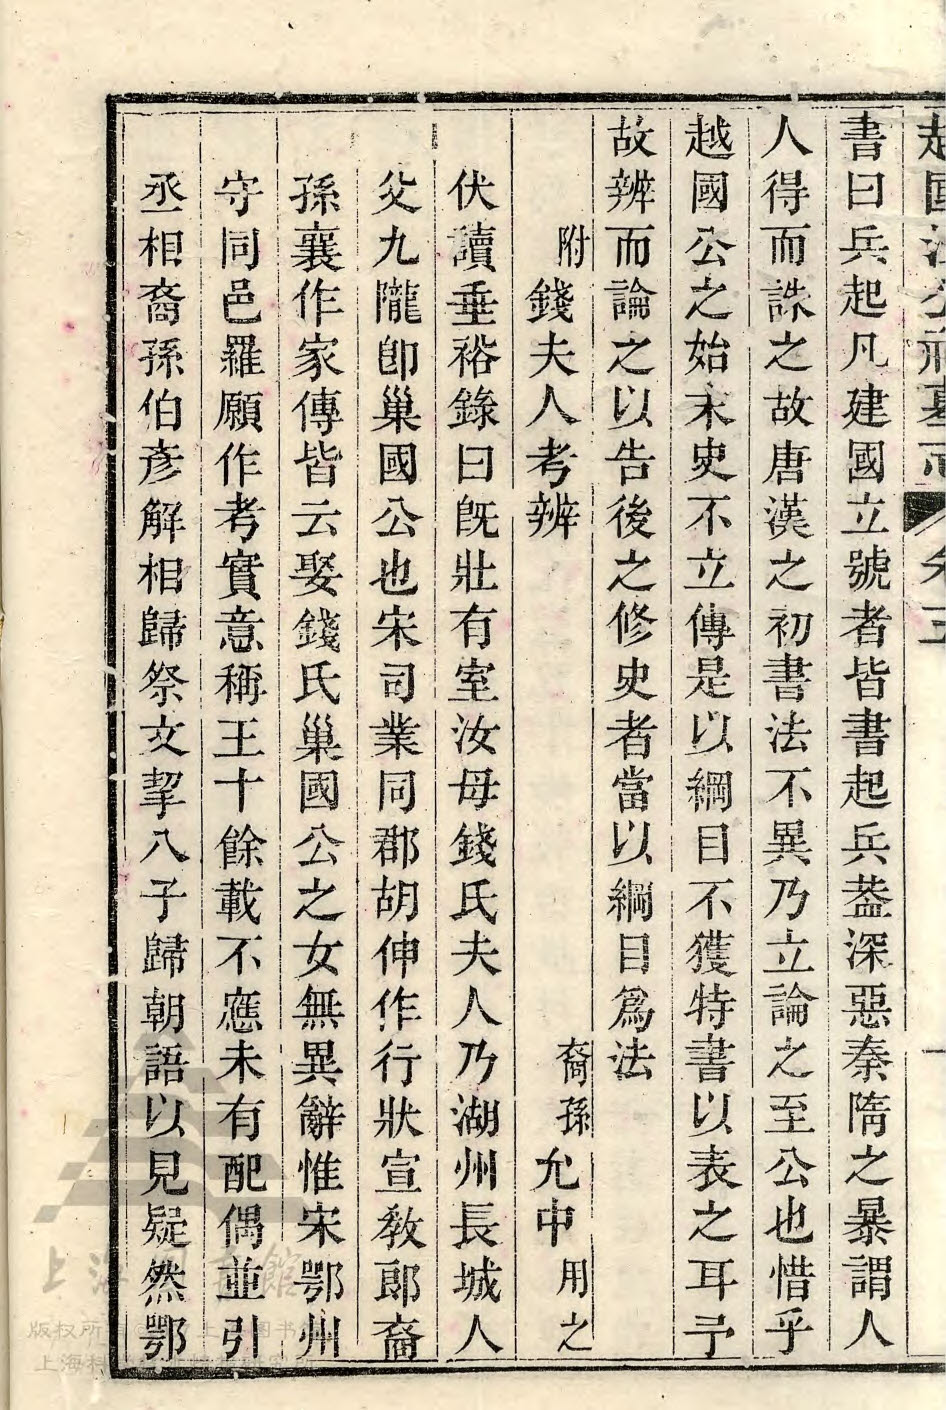 越國汪公祠墓志 卷三 一
書曰兵起凡建國立號者皆書起兵葢深惡秦隋之暴謂人
人得而誅之故唐漢之初書法不異乃立論之至公也惜乎
越國公之始末史不立傳是以綱目不獲特書以表之耳予
故辨而論之以告後之修史者當以綱目爲法
附錢夫人考辨 裔孫允中用之
伏讀垂裕錄曰旣壯有室汝母錢氏夫人乃湖州長城人
父九隴卽巢國公也宋司業同郡胡伸作行狀宣敎郞裔
孫襄作家傳皆云娶錢氏巢國公之女無異辭惟宋鄂州
守同邑羅願作考實意稱王十餘載不應未有配偶並引
丞相裔孫伯彥解相歸祭文挈八子歸朝語以見疑然鄂
上海图书馆